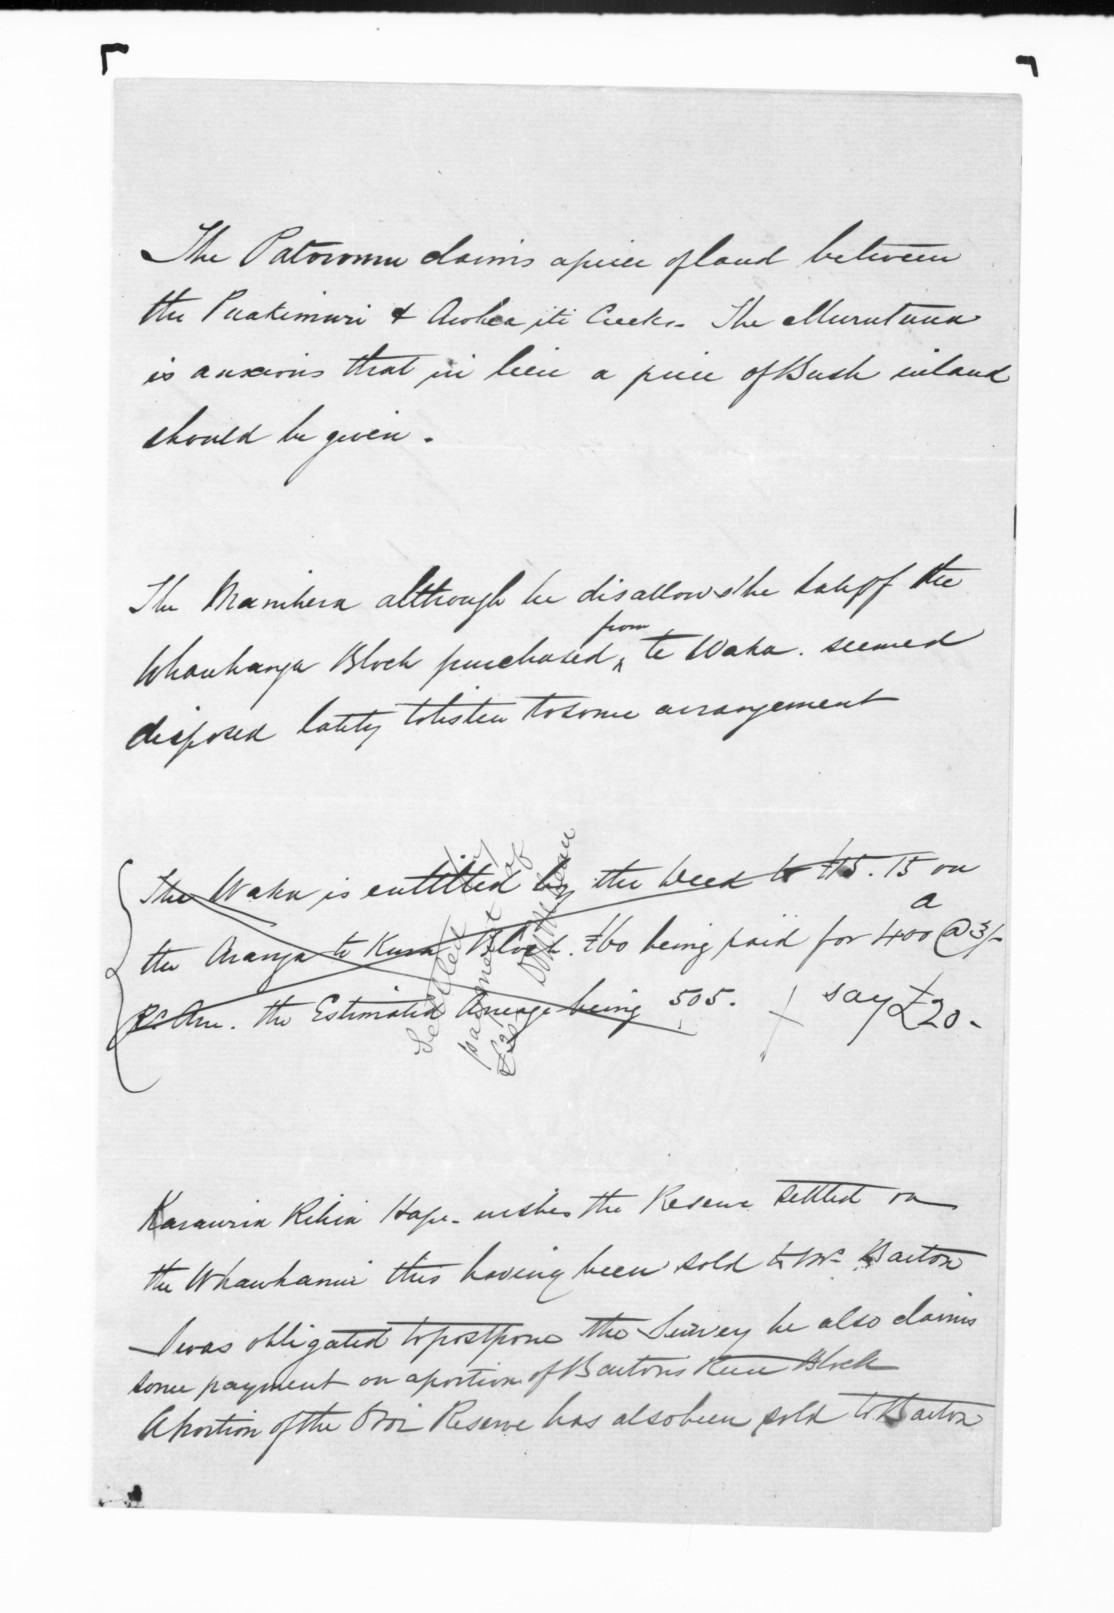 The Patoromu claims a piece of land between
the Puakimuri & Awhea iti Creeks. The Murutuna
is anxious that in lieu a piece of Bush inland
should be given.
The Manihera although he disallows the sale of the
Whawhanga Block purchased from te Waka. seemed
disposed lately to listen to some arrangement
The Waka is entitled by the Deed to £15.15 on
the Aranga te Kura Block. £60 being paid for 400 a @ 3/-
Pr Acre. the Estimated Acreage being 505. say £20-
Settled by
payment of
£20
Karauria Rihia Hape- wishes the Reserve settled on
the Whawhanui this having been sold to Mr Barton
I was obligated to postpone the Survey he also claims
some payment on a portion of Barton's Run Block
A Portion of the Oroi Reserve has also been sold to Barton